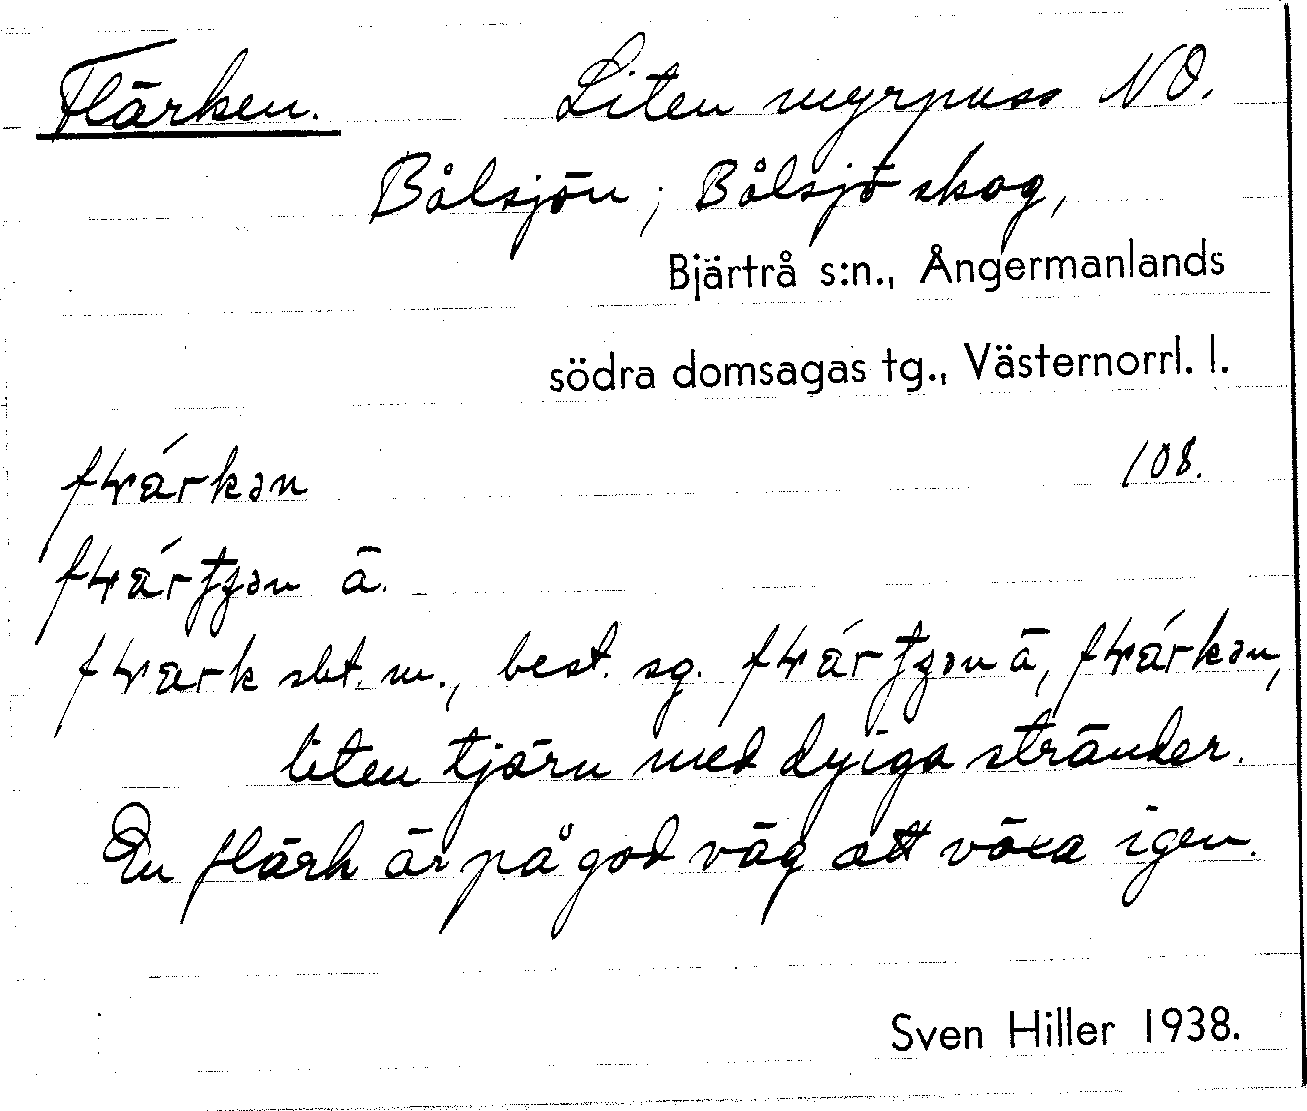 Flärken. Liten myrpuss NO.
Bålsjön; Bålsjö skog,
Bjärtrå s:n., Ångermanlands
södra domsagas tg., Västernorrl. l.
108.
ä.
sbt. m., best. sg. ä,
liten tjärn med dyiga stränder.
En flärk är på god väg att växa igen.
Sven Hiller 1938.